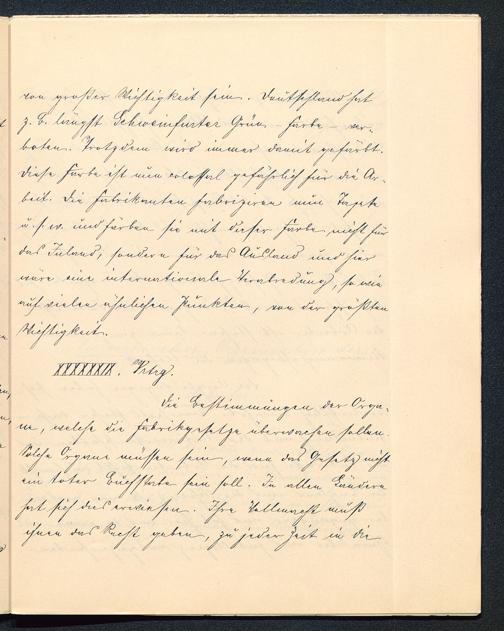 von großer Wichtigkeit sein. Deutschland hat
z. B. längst Schweinfurter Grün - Farbe - ver-
boten. Trotzdem wird immer damit gefärbt.
Diese Farbe ist nun colossal gefährlich für die Ar-
beit. Die Fabrikanten fabriziren nun Tapete
u. s. w. und färben sie mit dieser Farbe nicht für
das Inland, sondern für das Ausland und hier
wäre eine internationale Verabredung, so wie
auf vielen ähnlichen Punkten, von der größten
Wichtigkeit.
XXXXXXIX. Vrtrg.
Die Bestimmungen der Orga-
ne, welche die Fabrikgesetze überwachen sollen.
Solche Organe müssen sein, wenn das Gesetz nicht
ein toter Buchstabe sein soll. In allen Ländern
hat sich dies erwiesen. Ihre Vollmacht muß
ihnen das Recht geben, zu jeder Zeit in die